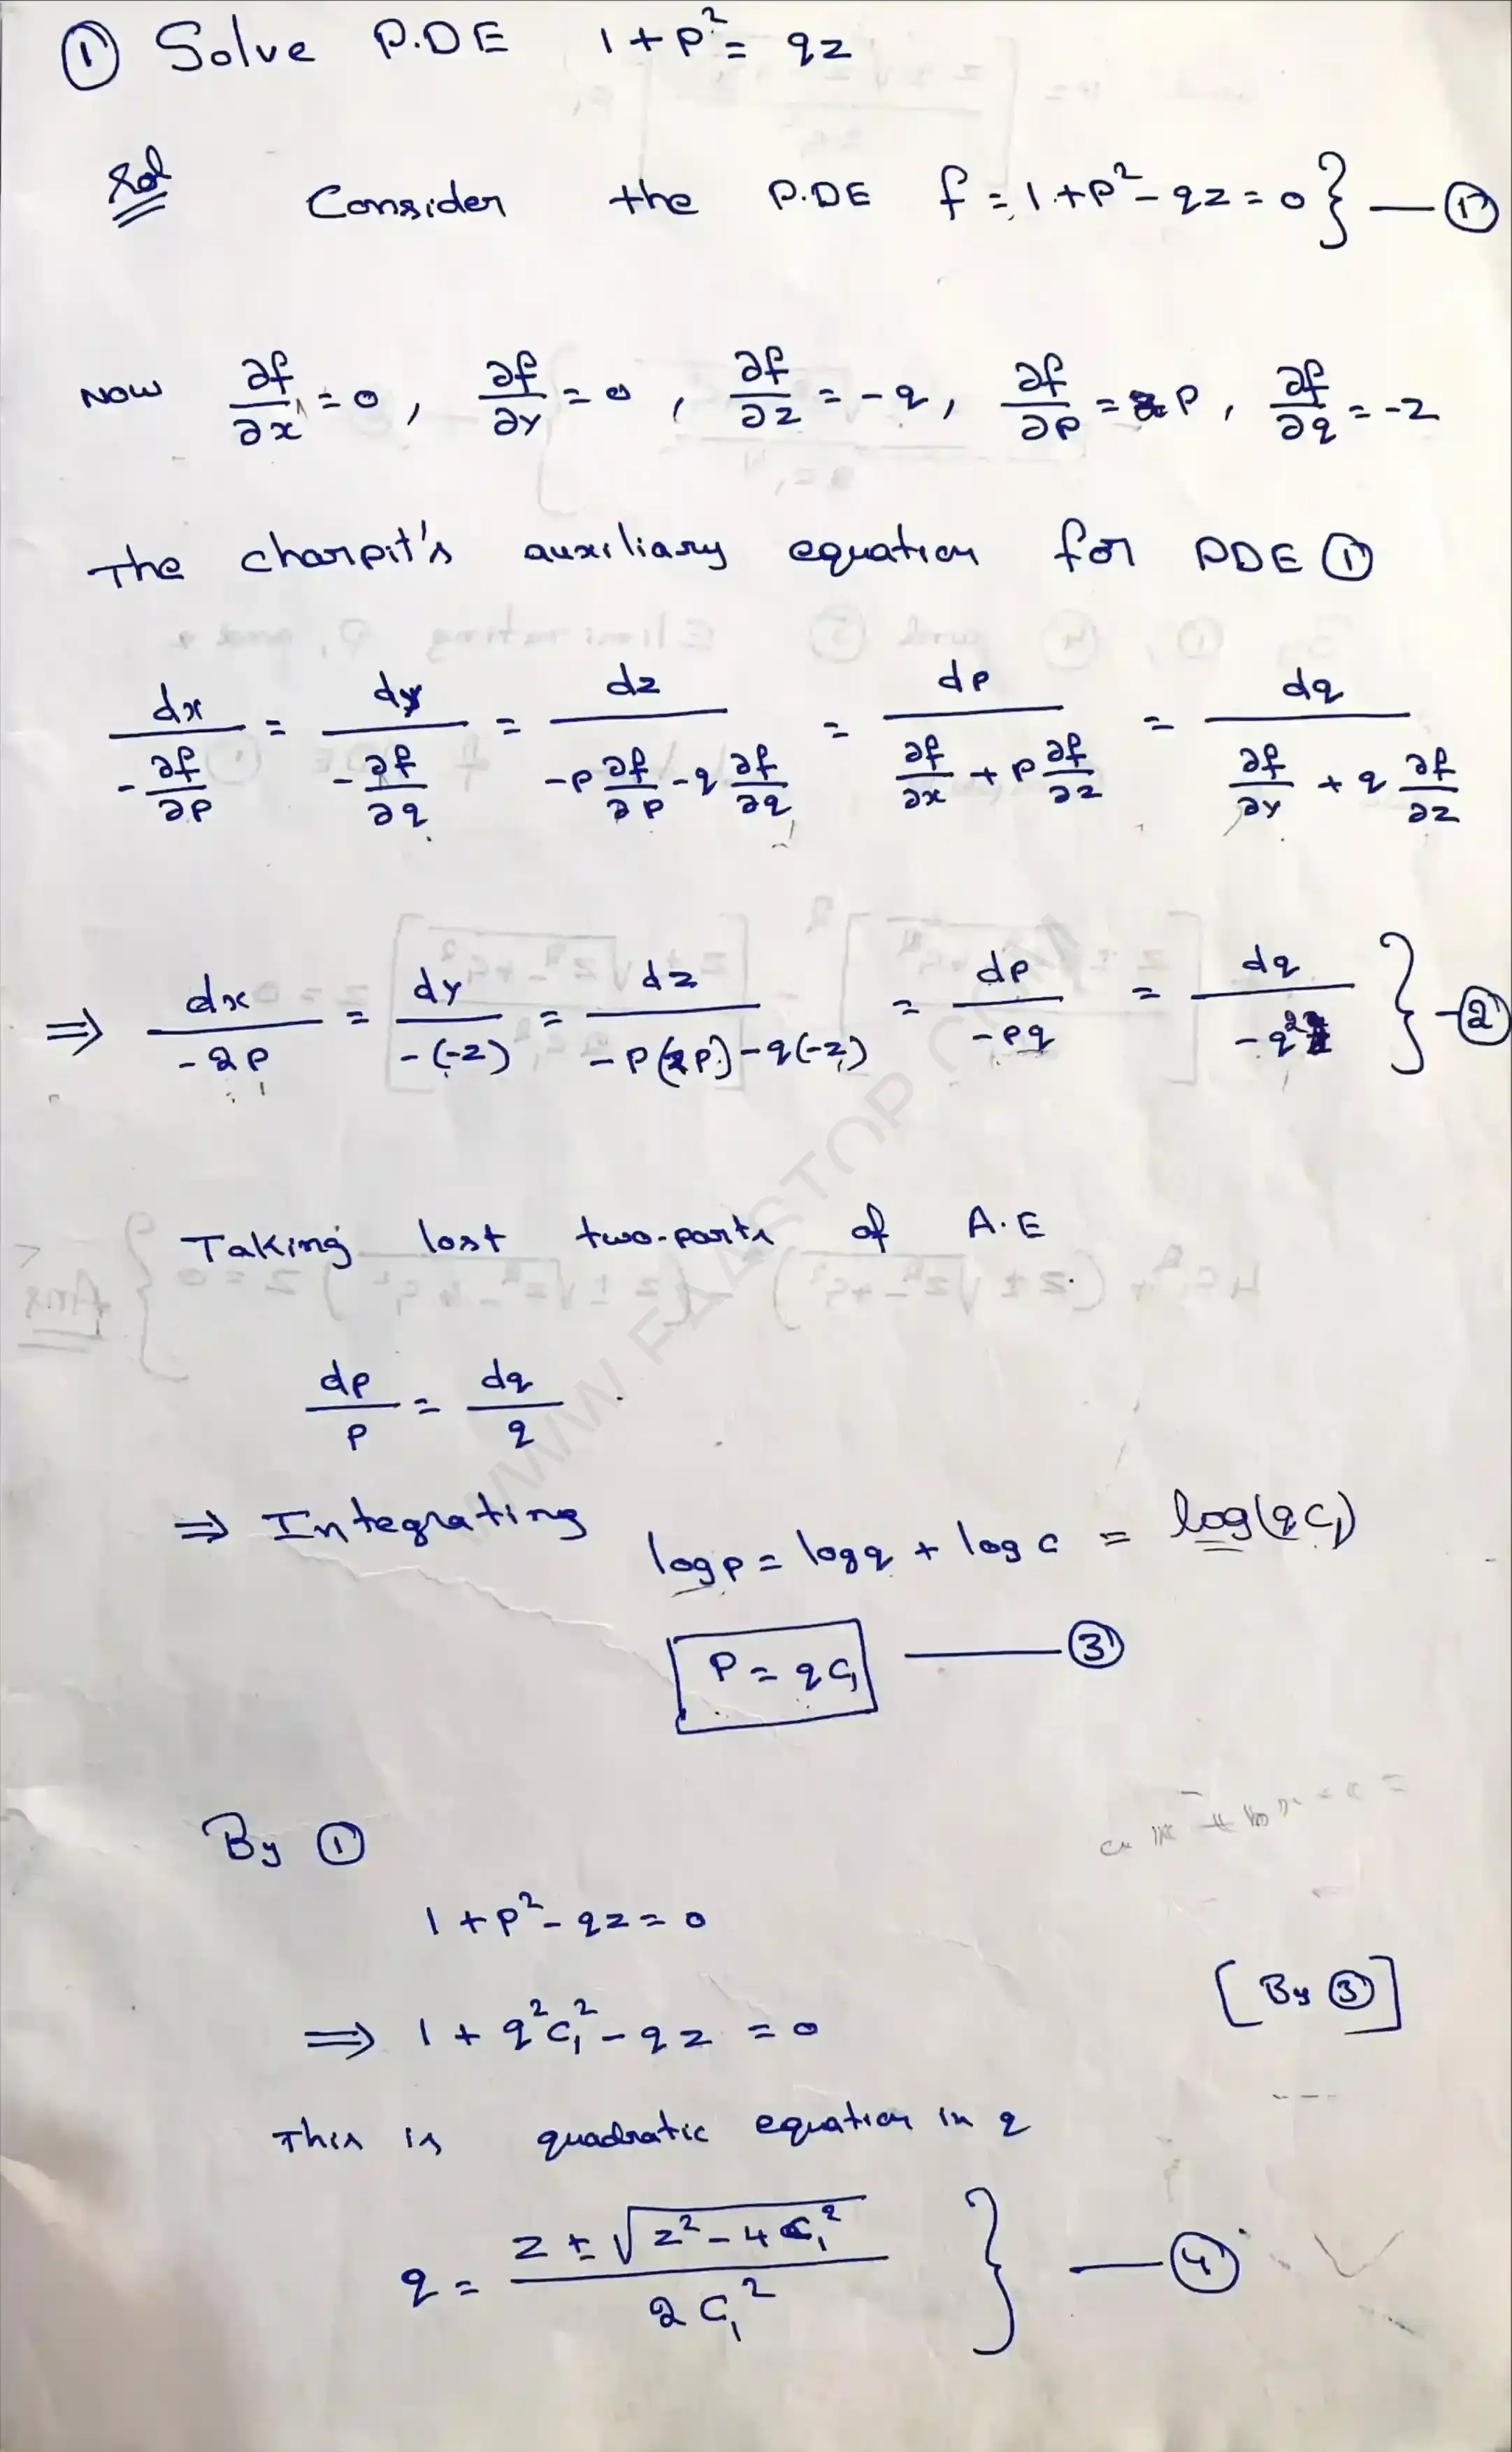 ① Solve P.D.E 1+p²= qz
Sol Consider the P.DE f = 1+p²-qz=0} — ①
Now ∂f/∂x = 0, ∂f/∂y = 0, ∂f/∂z = -q, ∂f/∂p = 2p, ∂f/∂q = -z
The charpit's auxiliary equation for PDE ①
dx/(-∂f/∂p) = dy/(-∂f/∂q) = dz/(-p ∂f/∂p - q ∂f/∂q) = dp/(∂f/∂x + p ∂f/∂z) = dq/(∂f/∂y + q ∂f/∂z)
⇒ dx/(-2p) = dy/(-(-z)) = dz/(-p(2p)-q(-z)) = dp/(-pq) = dq/(-q²) } - ②
Taking last two-parts of A.E
dp/p = dq/q
⇒ Integrating log p = log q + log c = log(q c₁)
P = q c₁ — ③
By ①
1 + p² - qz = 0
⇒ 1 + q²c₁² - qz = 0 [By ③]
This is quadratic equation in q
q = (z ± √(z² - 4c₁²))/(2c₁²) } — ④
WWW.FAASTOP.COM